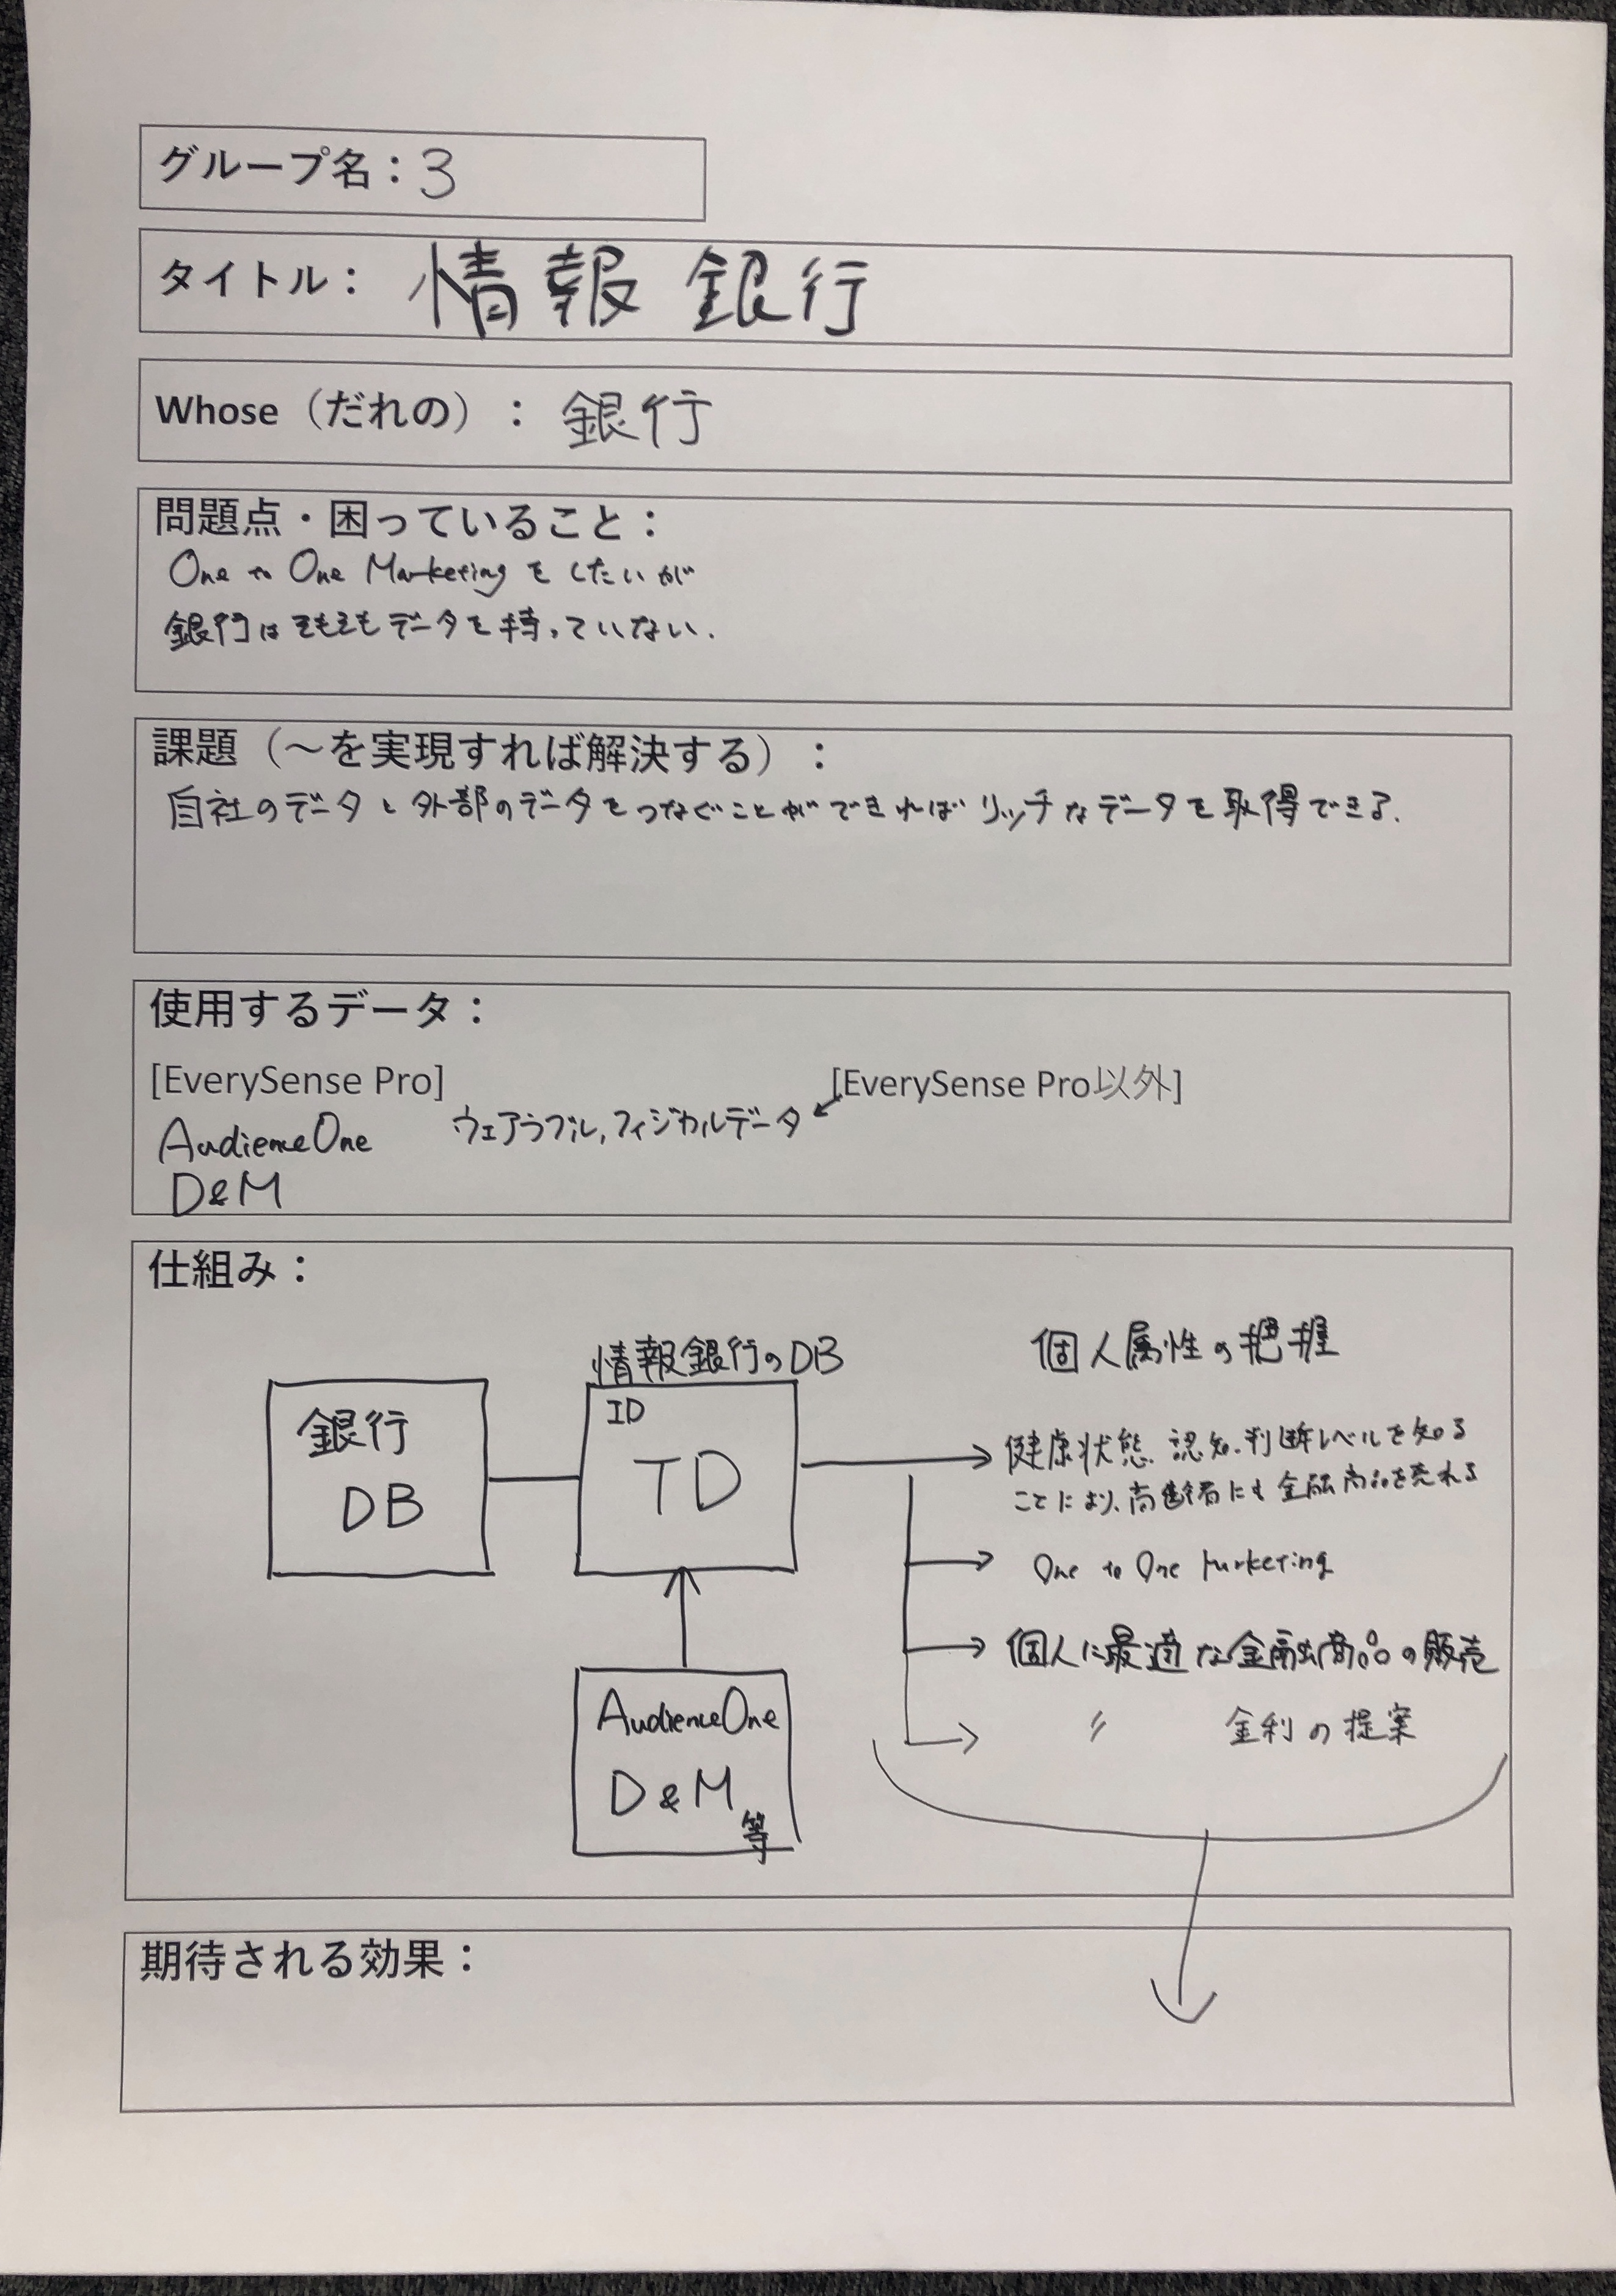 グループ名：3
タイトル： 情報銀行
Whose（だれの）： 銀行
問題点・困っていること：
One to One Marketing をしたいが
銀行はそもそもデータを持っていない.
課題（～を実現すれば解決する）：
自社のデータと外部のデータをつなぐことができればリッチなデータを取得できる.
使用するデータ：
[EverySense Pro]
[EverySense Pro以外]
AudienceOne
ウェアラブル, フィジカルデータ
D&M
仕組み：
情報銀行のDB
銀行
DB
ID
TD
AudienceOne
D&M等
個人属性の把握
健康状態、認知、判断レベルを知る
ことにより、高齢者にも金融商品を売れる
One to One Marketing
個人に最適な金融商品の販売
〃 金利の提案
期待される効果：